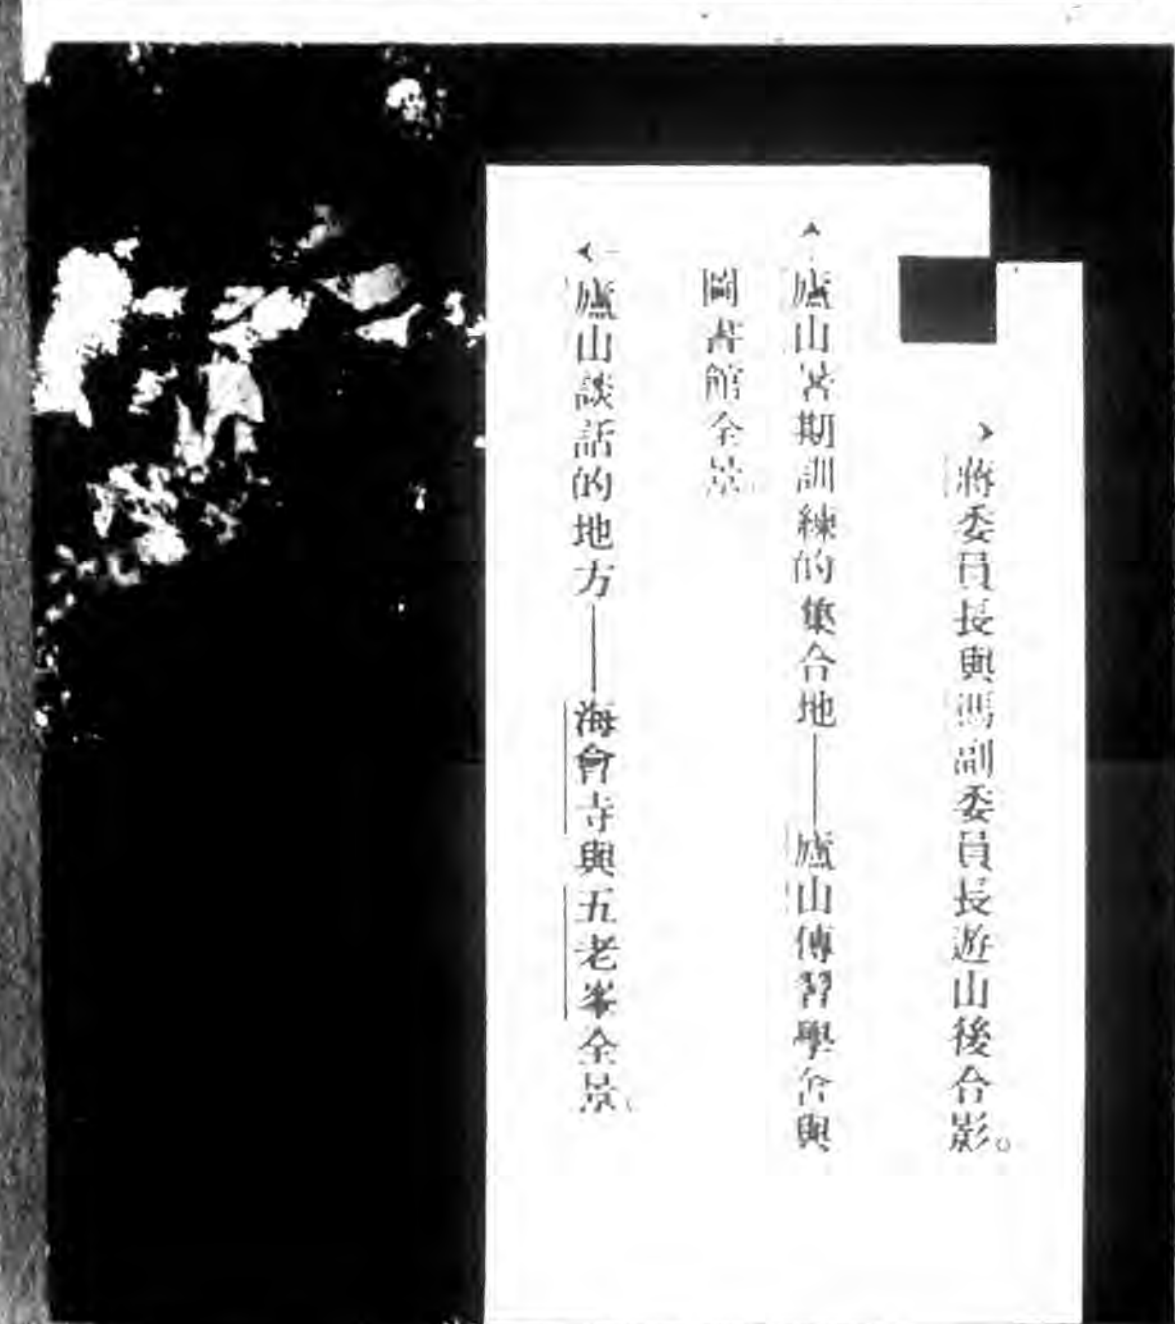 蔣委員長與馮副委員長遊山後合影。
廬山暑期訓練的集合地——廬山傳習學舍與
圖書館全景。
廬山談話的地方——海會寺與五老峯全景。